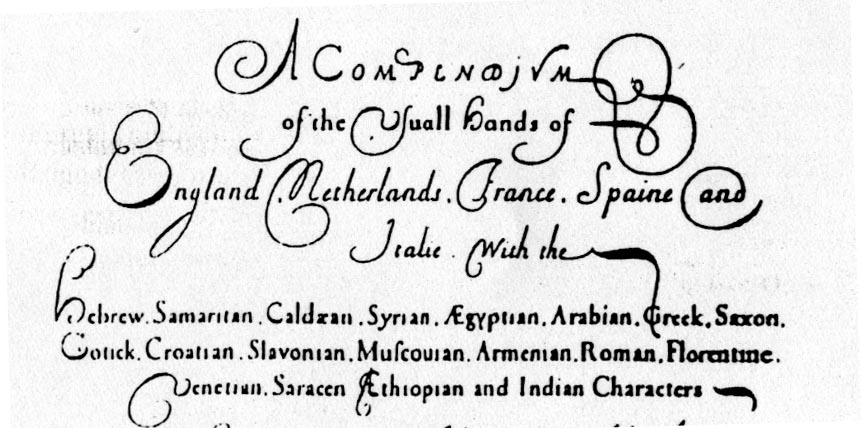 A COMPENDJVM
of the Vsuall hands of
England, Netherlands, France, Spaine and
Italie. With the
Hebrew. Samaritan. Caldæan. Syrian. Ægyptian. Arabian. Greek. Saxon.
Gotick. Croatian. Slavonian. Muſcouian. Armenian. Roman. Florentine.
Venetian. Saracen Æthiopian and Indian Characters